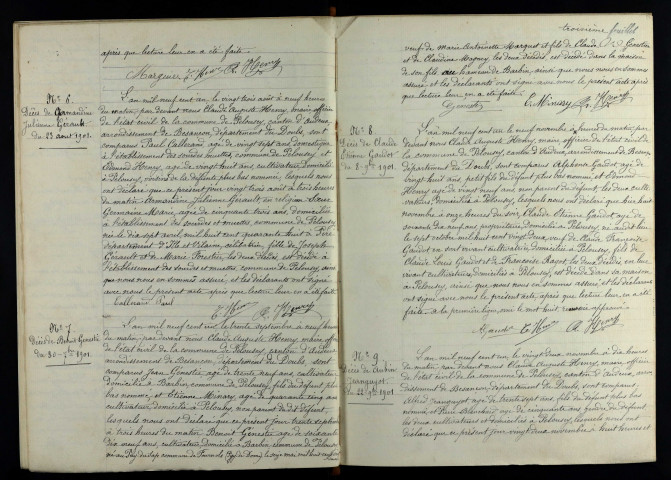 après que lecture leur en a été faite.
N° 6.
Décès de
Julienne Gérault
du 23 août 1901.
L'an mil neuf cent un le vingt trois août à neuf heures
du matin, par devant nous Claude Auguste Henry, maire officier
de l'état civil de la commune de Pelousey, canton d'Audeux,
arrondissement de Besançon, département du Doubs, sont
comparus Paul agé de vingt sept ans domestique
à l'établissement des sourdes et muettes commune de Pelousey et
Edmond Henry, agé de vingt huit ans cultivateur domicilié
à Pelousey, voisins de la défunte plus bas nommée, lesquels nous
ont déclaré que ce présent jour vingt trois août à trois heures
du matin Armandine, Julienne Gérault en religion Sœur
Germaine Marie, agée de cinquante trois ans, domiciliée
à l'établissement des sourdes et muettes, commune de Pelousey
née le dix sept avril mil huit cent quarante huit
département d'Ille et Vilaine, célibataire, fille de Joseph
Gérault et de Marie les deux décédés, est décédée à
l'établissement des sourdes et muettes commune de Pelousey, ainsi
que nous nous en sommes assuré; et les déclarants ont signé
avec nous le présent acte après que lecture leur en a été faite.
Paul
N° 7.
Décès de Benoit Genestié
du 30 1901.
L'an mil neuf cent un le trente septembre à neuf heures
du matin, par devant nous Claude Auguste Henry, maire officier
de l'état civil de la commune de Pelousey, canton d'Audeux
arrondissement de Besançon, département du Doubs, sont
comparus Jean Genestié, agé de trente neuf ans, cultivateur
domicilié à Barbin, commune de Pelousey, fils du défunt plus
bas nommé, et Etienne agé de quarante cinq ans
cultivateur domicilié à Pelousey, non parent du dit défunt,
lesquels nous ont déclaré que ce présent jour trente septembre
à trois heures du matin Benoit Genestié agé de soixante
dix neuf ans, cultivateur domicilié à Barbin, commune de Pelousey
né au commune de
troisième feuillet
veuf de Marie Antoinette et fils de Claude Genestié
et de Claudine les deux décédés, est décédé dans la maison
de son fils au hameau de Barbin, ainsi que nous nous en sommes
assuré; et les déclarants ont signé avec nous le présent acte après
que lecture leur en a été faite.
N° 8.
Décès de Claude
Etienne Gaudot
du 8 1901.
L'an mil neuf cent un le neuf novembre à heures du matin par
devant nous Claude Auguste Henry, maire officier de l'état civil de
la commune de Pelousey, canton d'Audeux, arrondissement de Besançon
département du Doubs, sont comparus Alphonse Gaudot agé de
vingt huit ans petit fils du défunt plus bas nommé et Edmond
Henry agé de vingt neuf ans non parent du défunt, les deux culti-
vateurs domiciliés à Pelousey, lesquels nous ont déclaré que hier huit
novembre à onze heures du soir, Claude Etienne Gaudot agé de
ans, propriétaire, domicilié à Pelousey, né audit lieu
le sept octobre mil huit cent vingt deux veuf de Claude Françoise
Gaudot en son vivant cultivatrice, domiciliée à Pelousey, fils de
Claude Louis Gaudot et de Françoise les deux décédés, en leur
vivant cultivateurs, domiciliés à Pelousey, est décédé dans sa maison
à Pelousey, ainsi que nous nous en sommes assuré et les déclarants
ont signé avec nous le présent acte, après que lecture leur en a été
faite.
N° 9
Décès de
Jeanguyot
du 22 1901
L'an mil neuf cent un, le vingt deux novembre, à dix heures
du matin par devant nous Claude Auguste Henry, maire officier
de l'état civil de la commune de Pelousey, canton d'Audeux, arron-
dissement de Besançon, département du Doubs, sont comparus
Alfred Jeanguyot agé de trente sept ans, fils du défunt plus bas
nommé, et agé de cinquante ans gendre du défunt
les deux cultivateurs et domiciliés à Pelousey, lesquels nous ont
déclaré que ce présent jour vingt deux novembre à